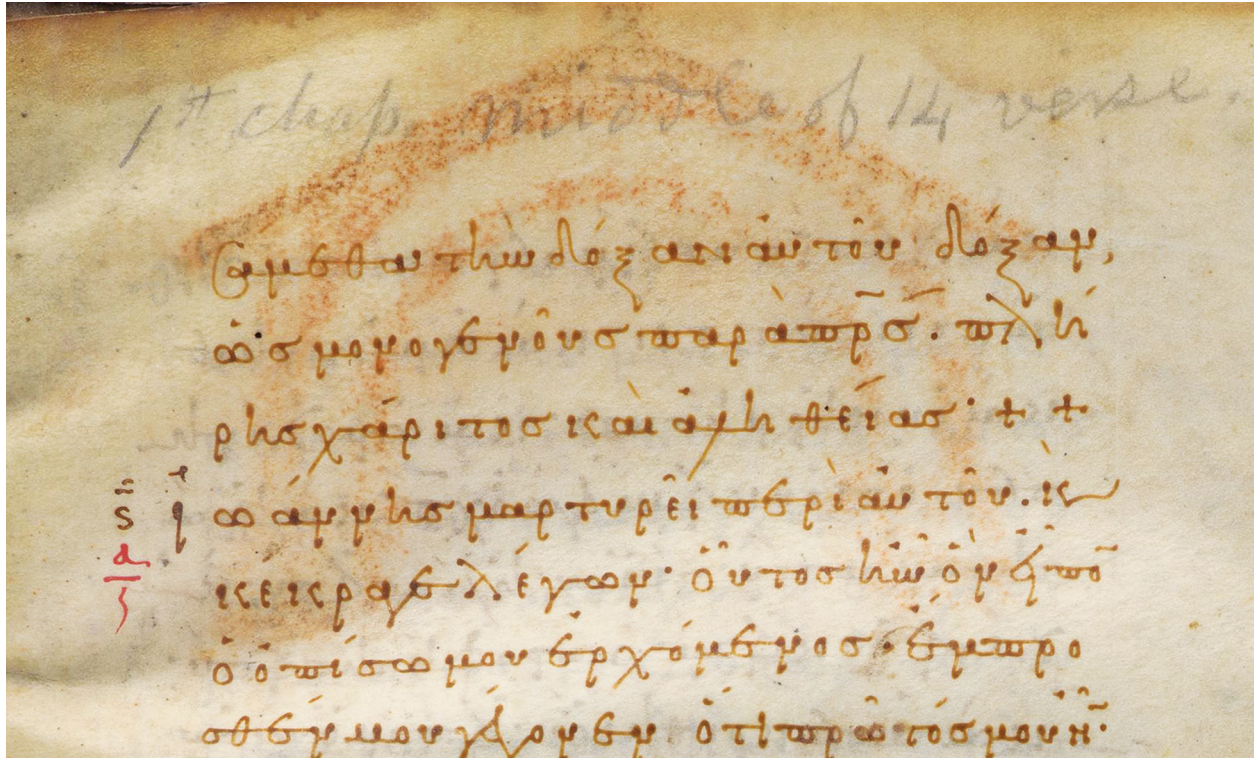 1st chap. middle of 14 verse.
σάμεθα τὴν δόξαν αὐτοῦ δόξαν,
ὡς μονογενοῦς παρὰ π̅ρ̅ς̅. πλή
ρης χάριτος καὶ ἀληθείας· + +
ϊωάννης μαρτυρεῖ περὶ αὐτοῦ. κ̀
κέκραγε λέγων· οὗτος ἦν ὃν εἶπο̅
ὁ ὀπίσω μου ἐρχόμενος· ἔμπρο
σθέν μου γέγονεν· ὅτι πρῶτός μου ἦ̅·
ς
α
ζ